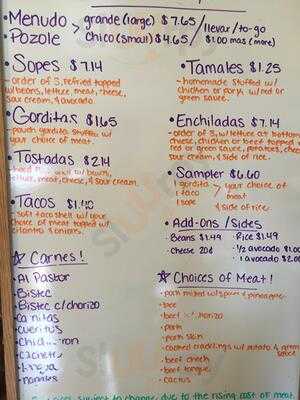 • Menudo
• Pozole
> grande (large) $7.65
chico (small) $4.65
/ llevar/to-go
$1.00 mas (more)
• Sopes $7.14
- order of 3, refried topped
w/beans, lettuce, meat, cheese,
sour cream, & avocado.
• Gorditas $1.65
- pouch gordita stuffed w/
your choice of meat.
• Tostadas $2.14
w/ beans,
lettuce, meat, cheese, & sour cream.
• Tacos
- soft taco shell w/ your
choice of meat topped w/
cilantro & onions.
☆ Carnes!
• Al Pastor
• Bistec
• Bistec c/chorizo
• Carnitas
• Cueritos
• Cachete
• Lengua
• Nopales
• Tamales $1.25
- homemade stuffed w/
chicken or pork w/ red or
green sauce.
• Enchiladas $7.14
- order of 3, w/ lettuce at bottom,
cheese, chicken or beef topped w/
red or green sauce, potatoes, cheese,
sour cream, & side of rice.
• Sampler $6.60
1 gordita
1 taco
1 sope
> your choice of
meat
& side of rice.
• Add-ons / Sides
• Beans $1.49
• Rice $1.49
Cheese 20¢
• 1/2 avocado $1.00
• 1 avocado $2.00
☆ Choices of Meat!
- pork mixed w/ spices & pineapple
• beef
• beef w/ chorizo
• pork
• pork skin
• cooked cracklings w/ potato & green
sauce
• beef cheek
• beef tongue
• cactus
subject to change due to the rising cost of meat.